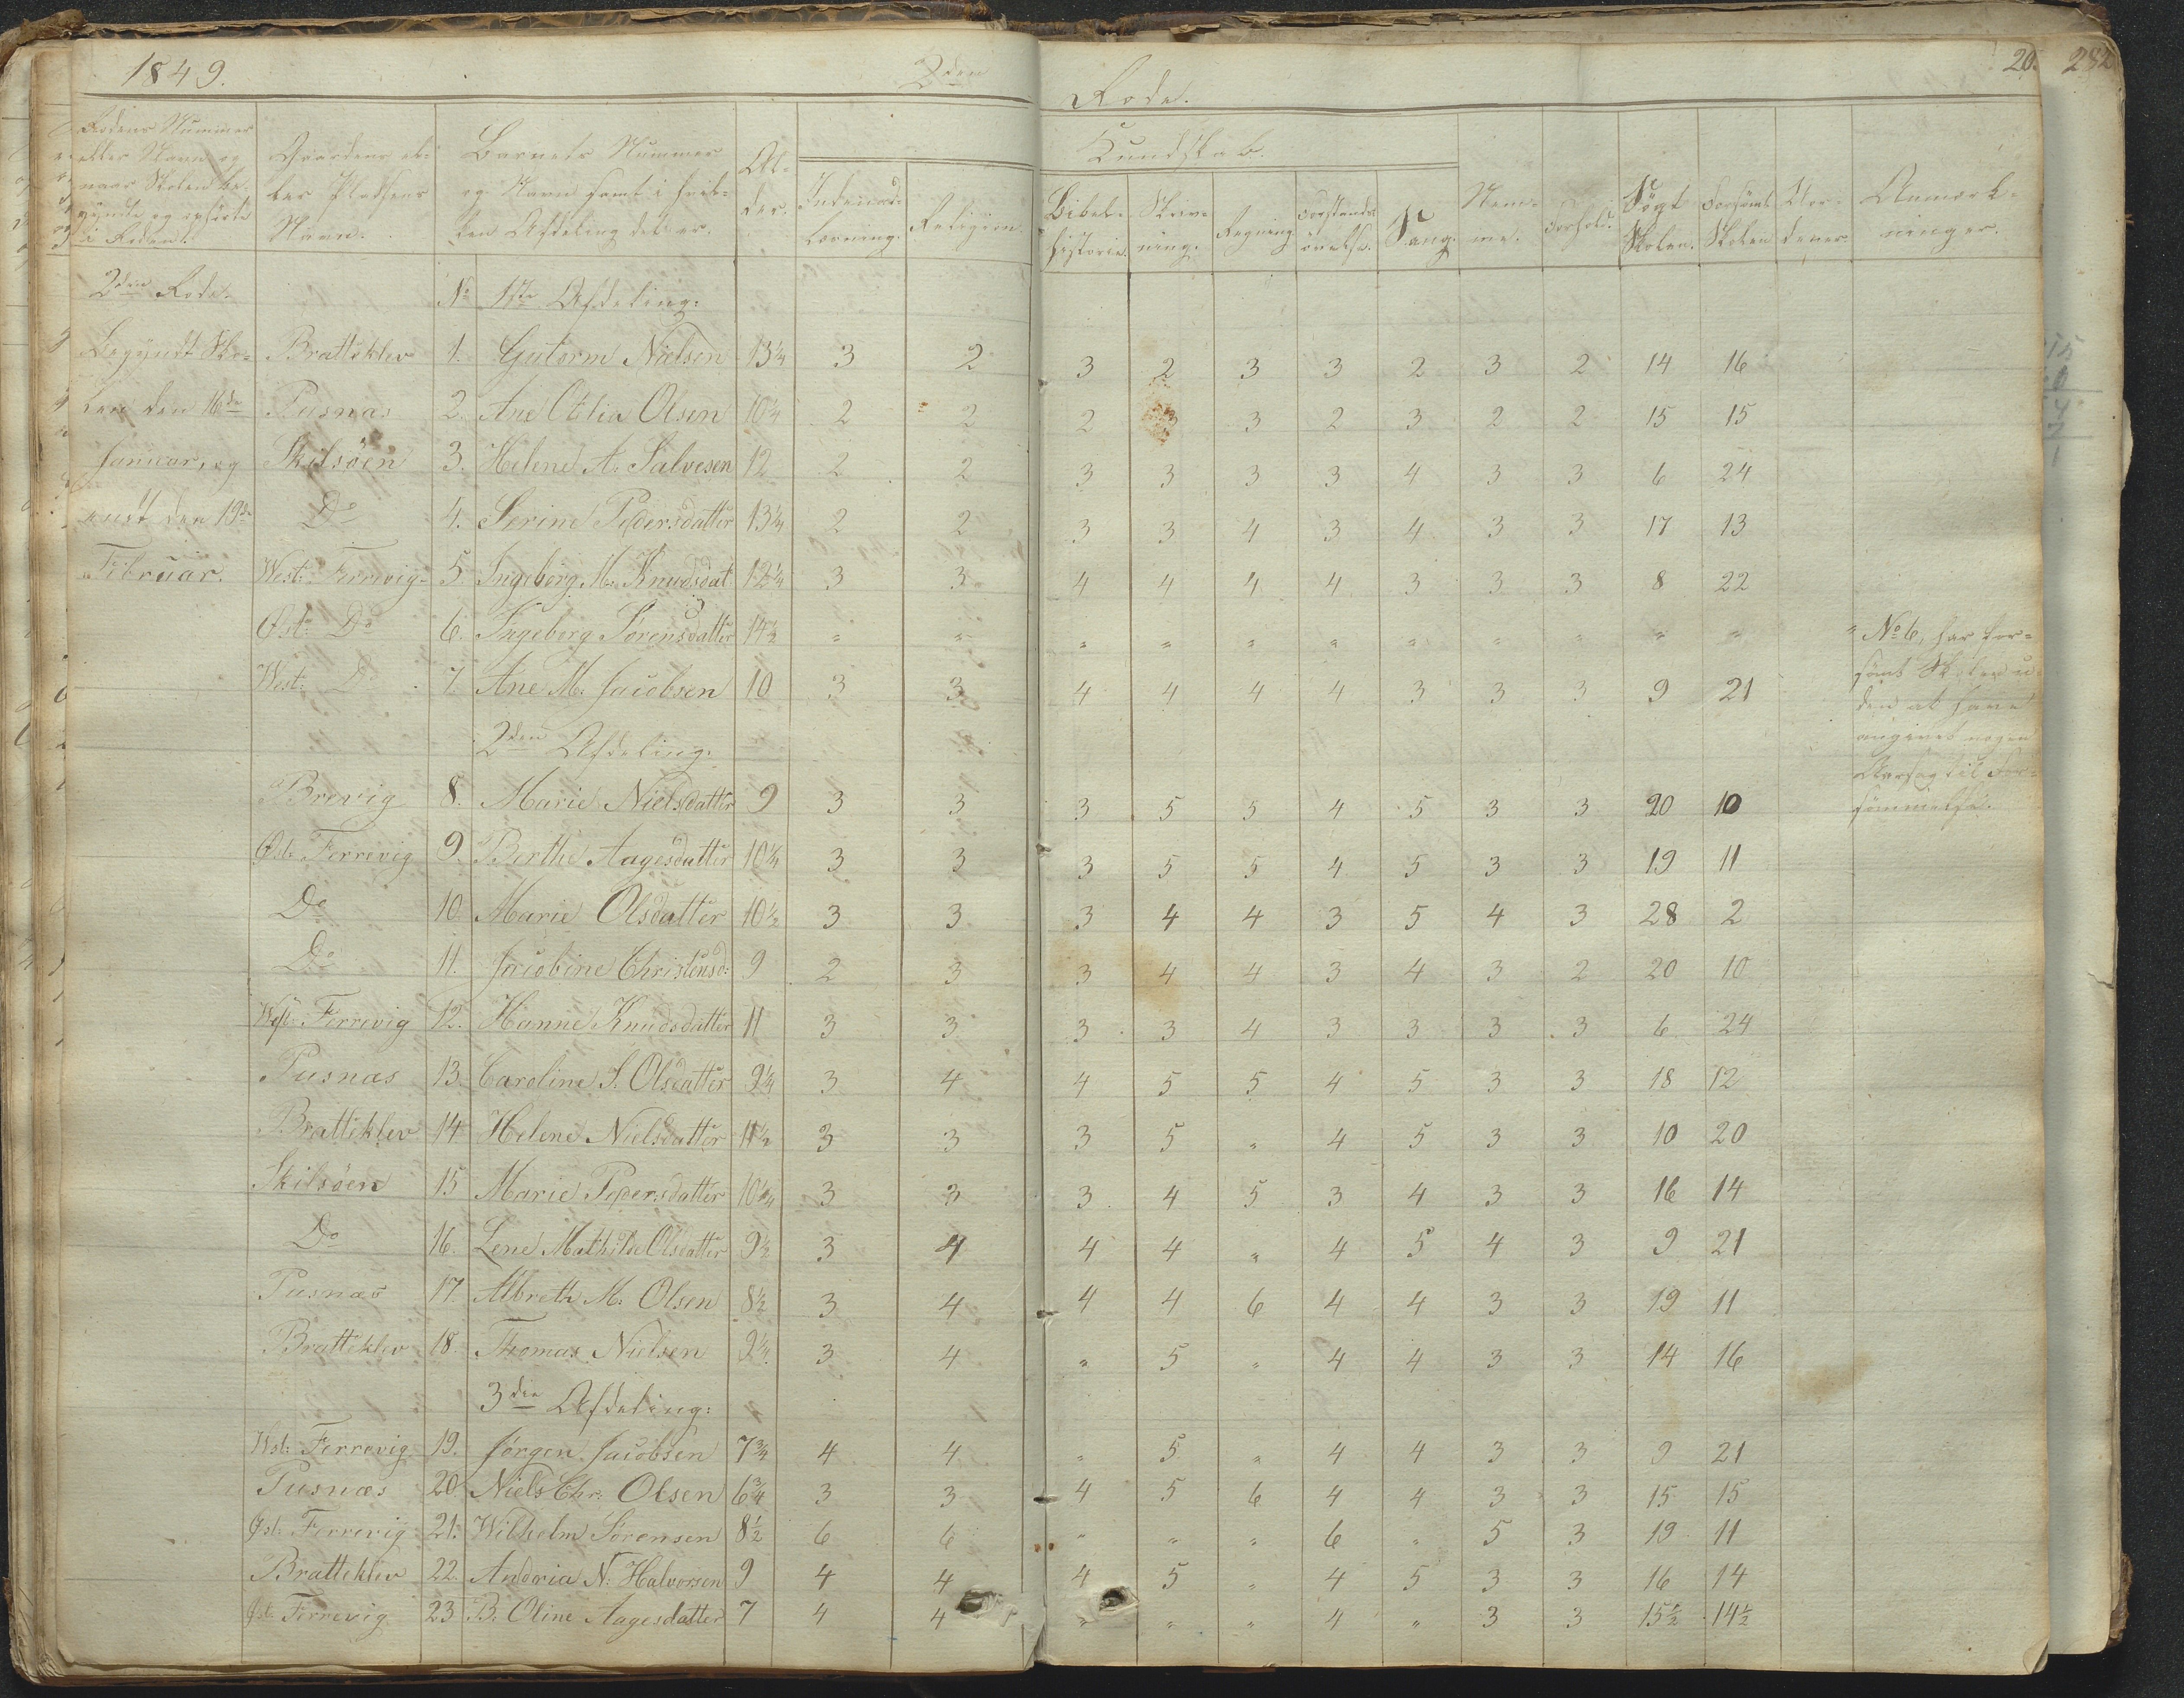 1849.
2den
Rode.
20. 282
Rodens Nummer eller Navn og naar Skolen begyndte og ophörte i Roden.
Gaardens eller Pladsens Navn.
Barnets Nummer og Navn samt i hvilken Afdeling det er.
Alder.
Kundskab.
Indenadslæsning.
Religion.
Bibelhistorie.
Skrivning.
Regning
Forstandsövelse.
Sang.
Nemme.
Forhold.
Sögt Skolen.
Forsömt Skolen
Anmærkninger.
2den Rode. No 1ste Afdeling:
Begyndt Sko- Bratteklev 1. Gutorm Nielsen 13¼ 3 2 3 2 3 3 2 3 2 14 16
len den 16de Pusnæs 2. Ane Otilia Olsen 10¼ 2 2 2 3 3 2 3 2 2 15 15
Januar, og Skilsöen 3. Helene A. Salvesen 12 2 2 3 3 3 3 4 3 3 6 24
endt den 19de Do 4. Serine Pedersdatter 13¼ 2 2 3 3 4 3 4 3 3 17 13
Februar. West: Ferrevig 5. Ingeborg M. Knudsdat 12¼ 3 3 4 4 4 4 3 3 3 8 22
Øst: Do 6. Ingeborg Sörensdatter 14½ " " " " " " " " " " " " No 6, har for-
sömt Skolen u-
West: Do 7. Ane M. Jacobsen 10 3 3 4 4 4 4 3 3 3 9 21
den at have
2den Afdeling:
angivet nogen
Aarsag til For-
Brevig 8. Marie Nielsdatter 9 3 3 3 5 5 4 5 3 3 20 10
sömmelse.
Øst: Ferrevig 9. Berthe Aagesdatter 10¼ 3 3 3 5 5 4 5 3 3 19 11
Do 10. Marie Olsdatter 10½ 3 3 3 4 4 3 5 4 3 28 2
Do 11. Jacobine Christensd: 9 2 3 3 4 4 3 4 3 2 20 10
West: Ferrevig 12. Hanne Knudsdatter 11 3 3 3 3 4 3 3 3 3 6 24
Pusnæs 13. Caroline S. Olsdatter 9¼ 3 4 4 5 5 4 5 3 3 18 12
Bratteklev 14 Helene Nielsdatter 11½ 3 3 3 5 " 4 5 3 3 10 20
Skilsöen 15 Marie Pedersdatter 10¼ 3 3 3 4 5 3 4 3 3 16 14
Do 16. Lene Mathilde Olsdatter 9½ 3 4 4 4 " 4 5 4 3 9 21
Pusnæs 17. Albreth M. Olsen 8½ 3 4 4 4 6 4 4 3 3 19 11
Bratteklev 18. Thomas Nielsen 9¼ 3 4 " 5 " 4 4 3 3 14 16
3die Afdeling:
Wst: Ferrevig 19. Jörgen Jacobsen 7¾ 4 4 " 5 " 4 4 3 3 9 21
Pusnæs 20. Niels Chr. Olsen 6¾ 3 3 4 5 6 4 4 3 3 15 15
Øst: Ferrevig 21. Wilhelm Sörensen 8½ 6 6 " " " 6 " 5 3 19 11
Bratteklev 22. Andoria N. Halvorsen 9 4 4 4 5 " 4 5 3 3 16 14
Øst: Ferrevig 23 B. Oline Aagesdatter 7 4 4 " " " 4 " 3 3 15½ 14½